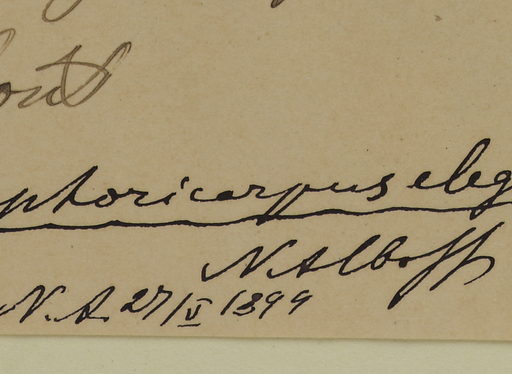 ont
phoricarpus eleg
N. Alboff
N. A. 27/V 1899